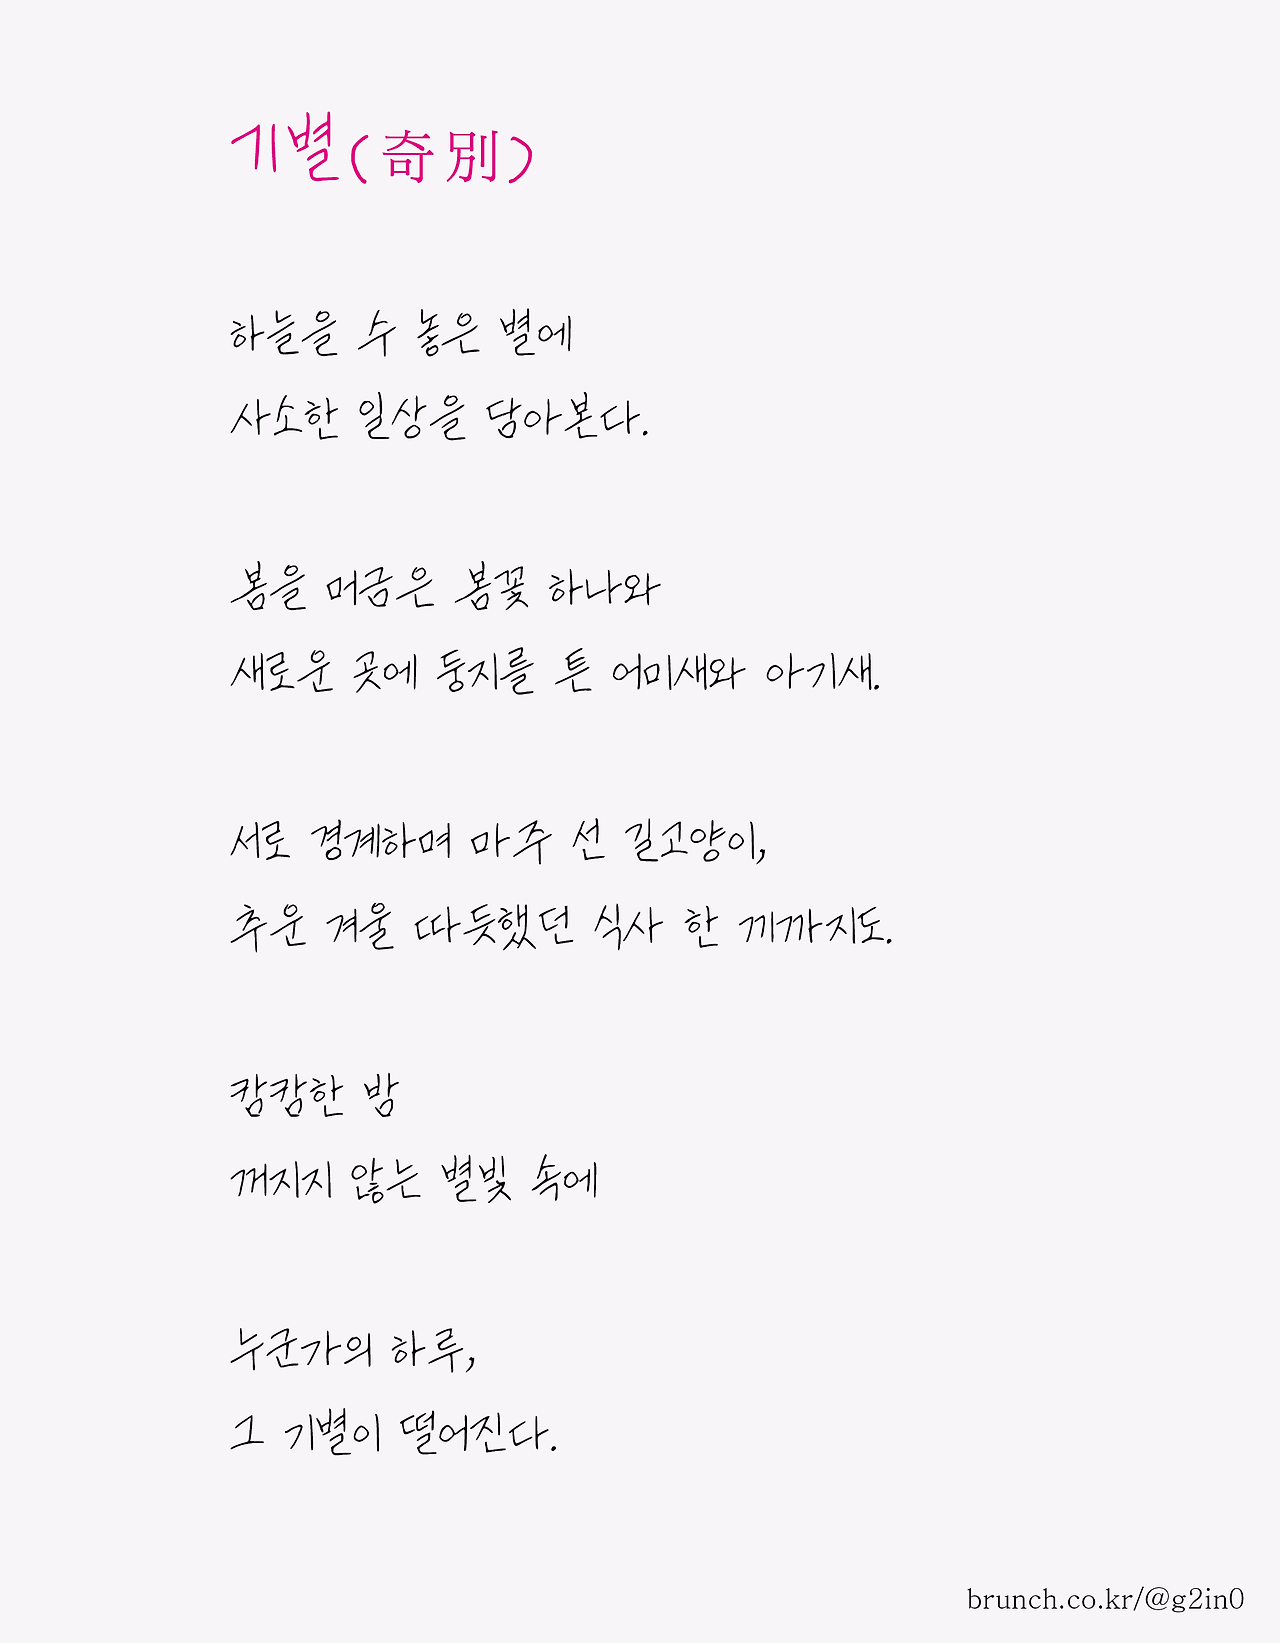 기별(奇別)
하늘을 수 놓은 별에
사소한 일상을 담아본다.
봄을 머금은 봄꽃 하나와
새로운 곳에 둥지를 튼 어미새와 아기새.
서로 경계하며 마주 선 길고양이,
추운 겨울 따듯했던 식사 한 끼까지도.
캄캄한 밤
꺼지지 않는 별빛 속에
누군가의 하루,
그 기별이 떨어진다.
brunch.co.kr/@g2in0